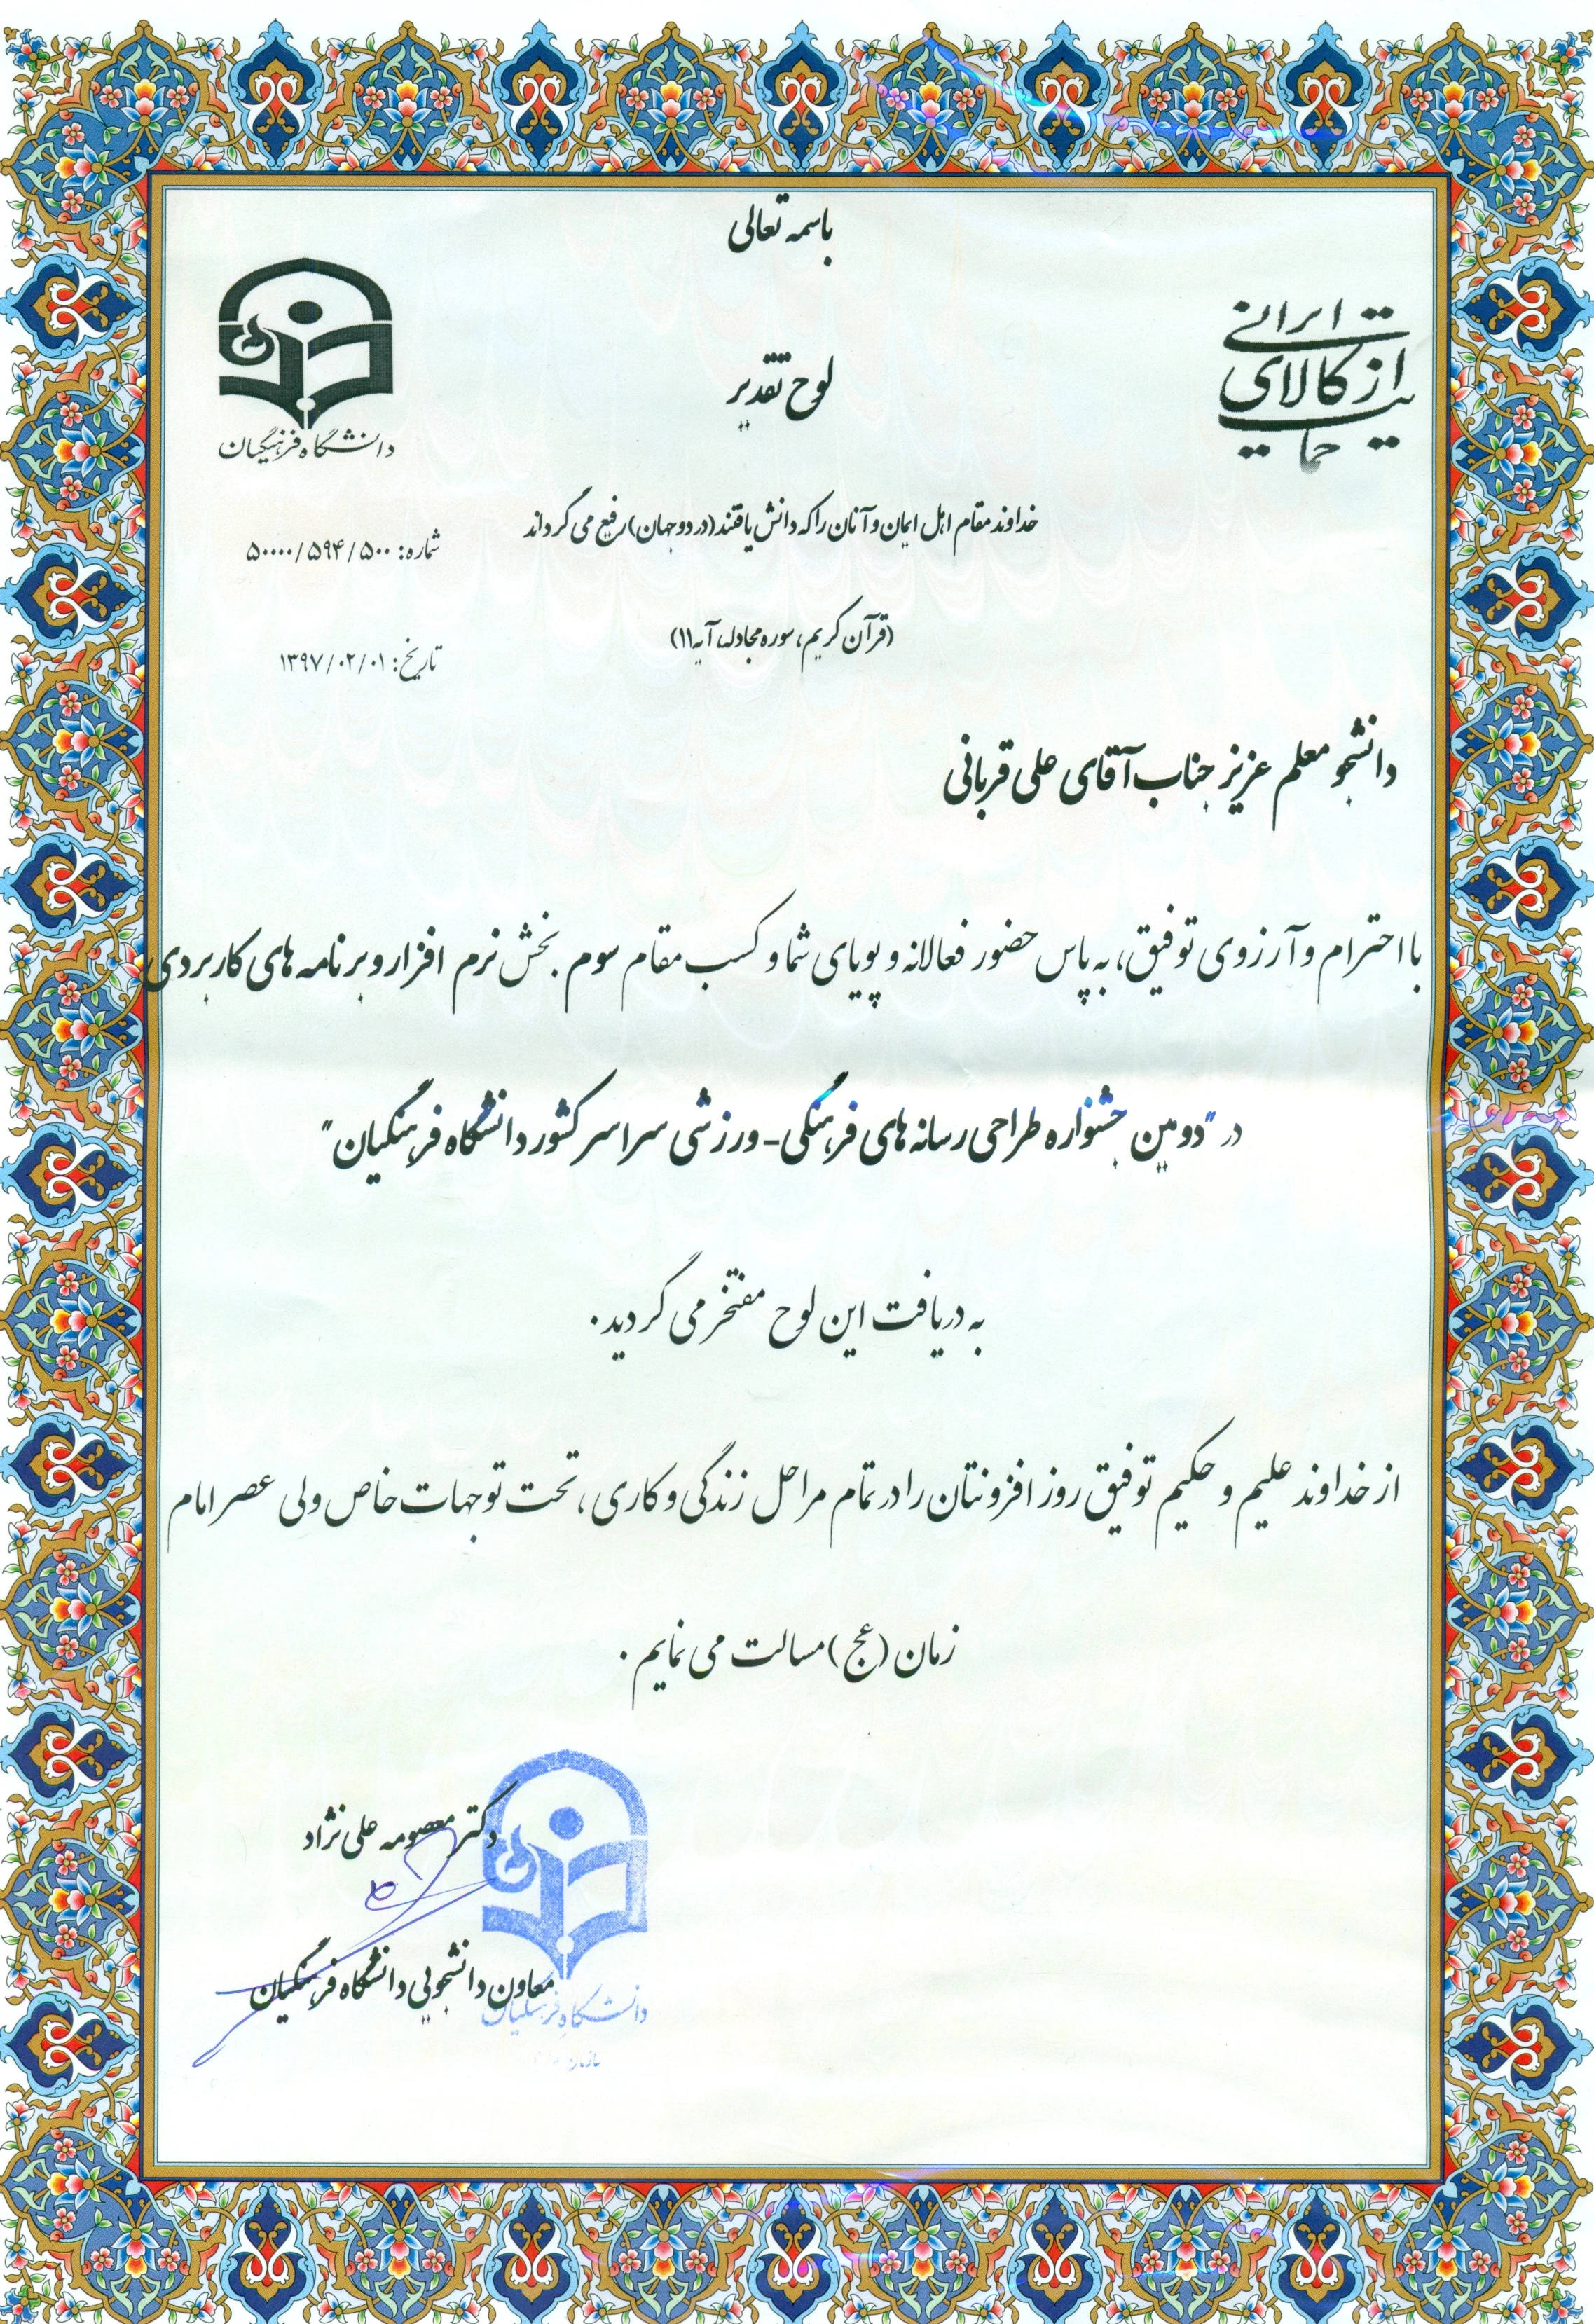 باسمه تعالی
حمایت از کالای ایرانی
لوح تقدیر
دانشگاه فرهنگیان
خداوند مقام اهل ایمان و آنان را که دانش یافتند (در دو جهان) رفیع می گرداند
شماره: ۵۰۰۰۰/۵۹۴/۵۰۰
(قرآن کریم، سوره مجادله، آیه ۱۱)
تاریخ: ۱۳۹۷/۰۲/۰۱
دانشجو معلم عزیز جناب آقای علی قربانی
با احترام و آرزوی توفیق، به پاس حضور فعالانه و پویای شما و کسب مقام سوم بخش نرم افزار و برنامه های کاربردی
در "دومین جشنواره طراحی رسانه های فرهنگی- ورزشی سراسر کشور دانشگاه فرهنگیان"
به دریافت این لوح مفتخر می گردید.
از خداوند علیم و حکیم توفیق روز افزونتان را در تمام مراحل زندگی و کاری، تحت توجهات خاص ولی عصر امام
زمان (عج) مسالت می نمایم.
دکتر معصومه علی نژاد
معاون دانشجویی دانشگاه فرهنگیان
دانشگاه فرهنگیان